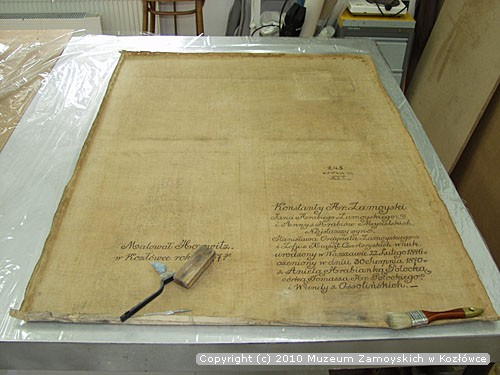 Konstanty Hr. Zamoyski
Jana Hrabiego Zamoyskiego
i Annyz Hrabiów Mycielskich
Najstarszy syn
Stanisława Ordynata Zamoyskiego
i Zofii z Książąt Czartoryskich wnuk
urodzony w Warszawie 12 Lutego 1846
ożeniony w dniu 30 sierpnia 1870
z Anielą Hrabianką Potocką
córką Tomasza Hr. Potockiego
Wandy z Ossolińskich.
Malował Horowitz
w Kozłówce roku
Copyright (c) 2010 Muzeum Zamoyskich w Kozłówce